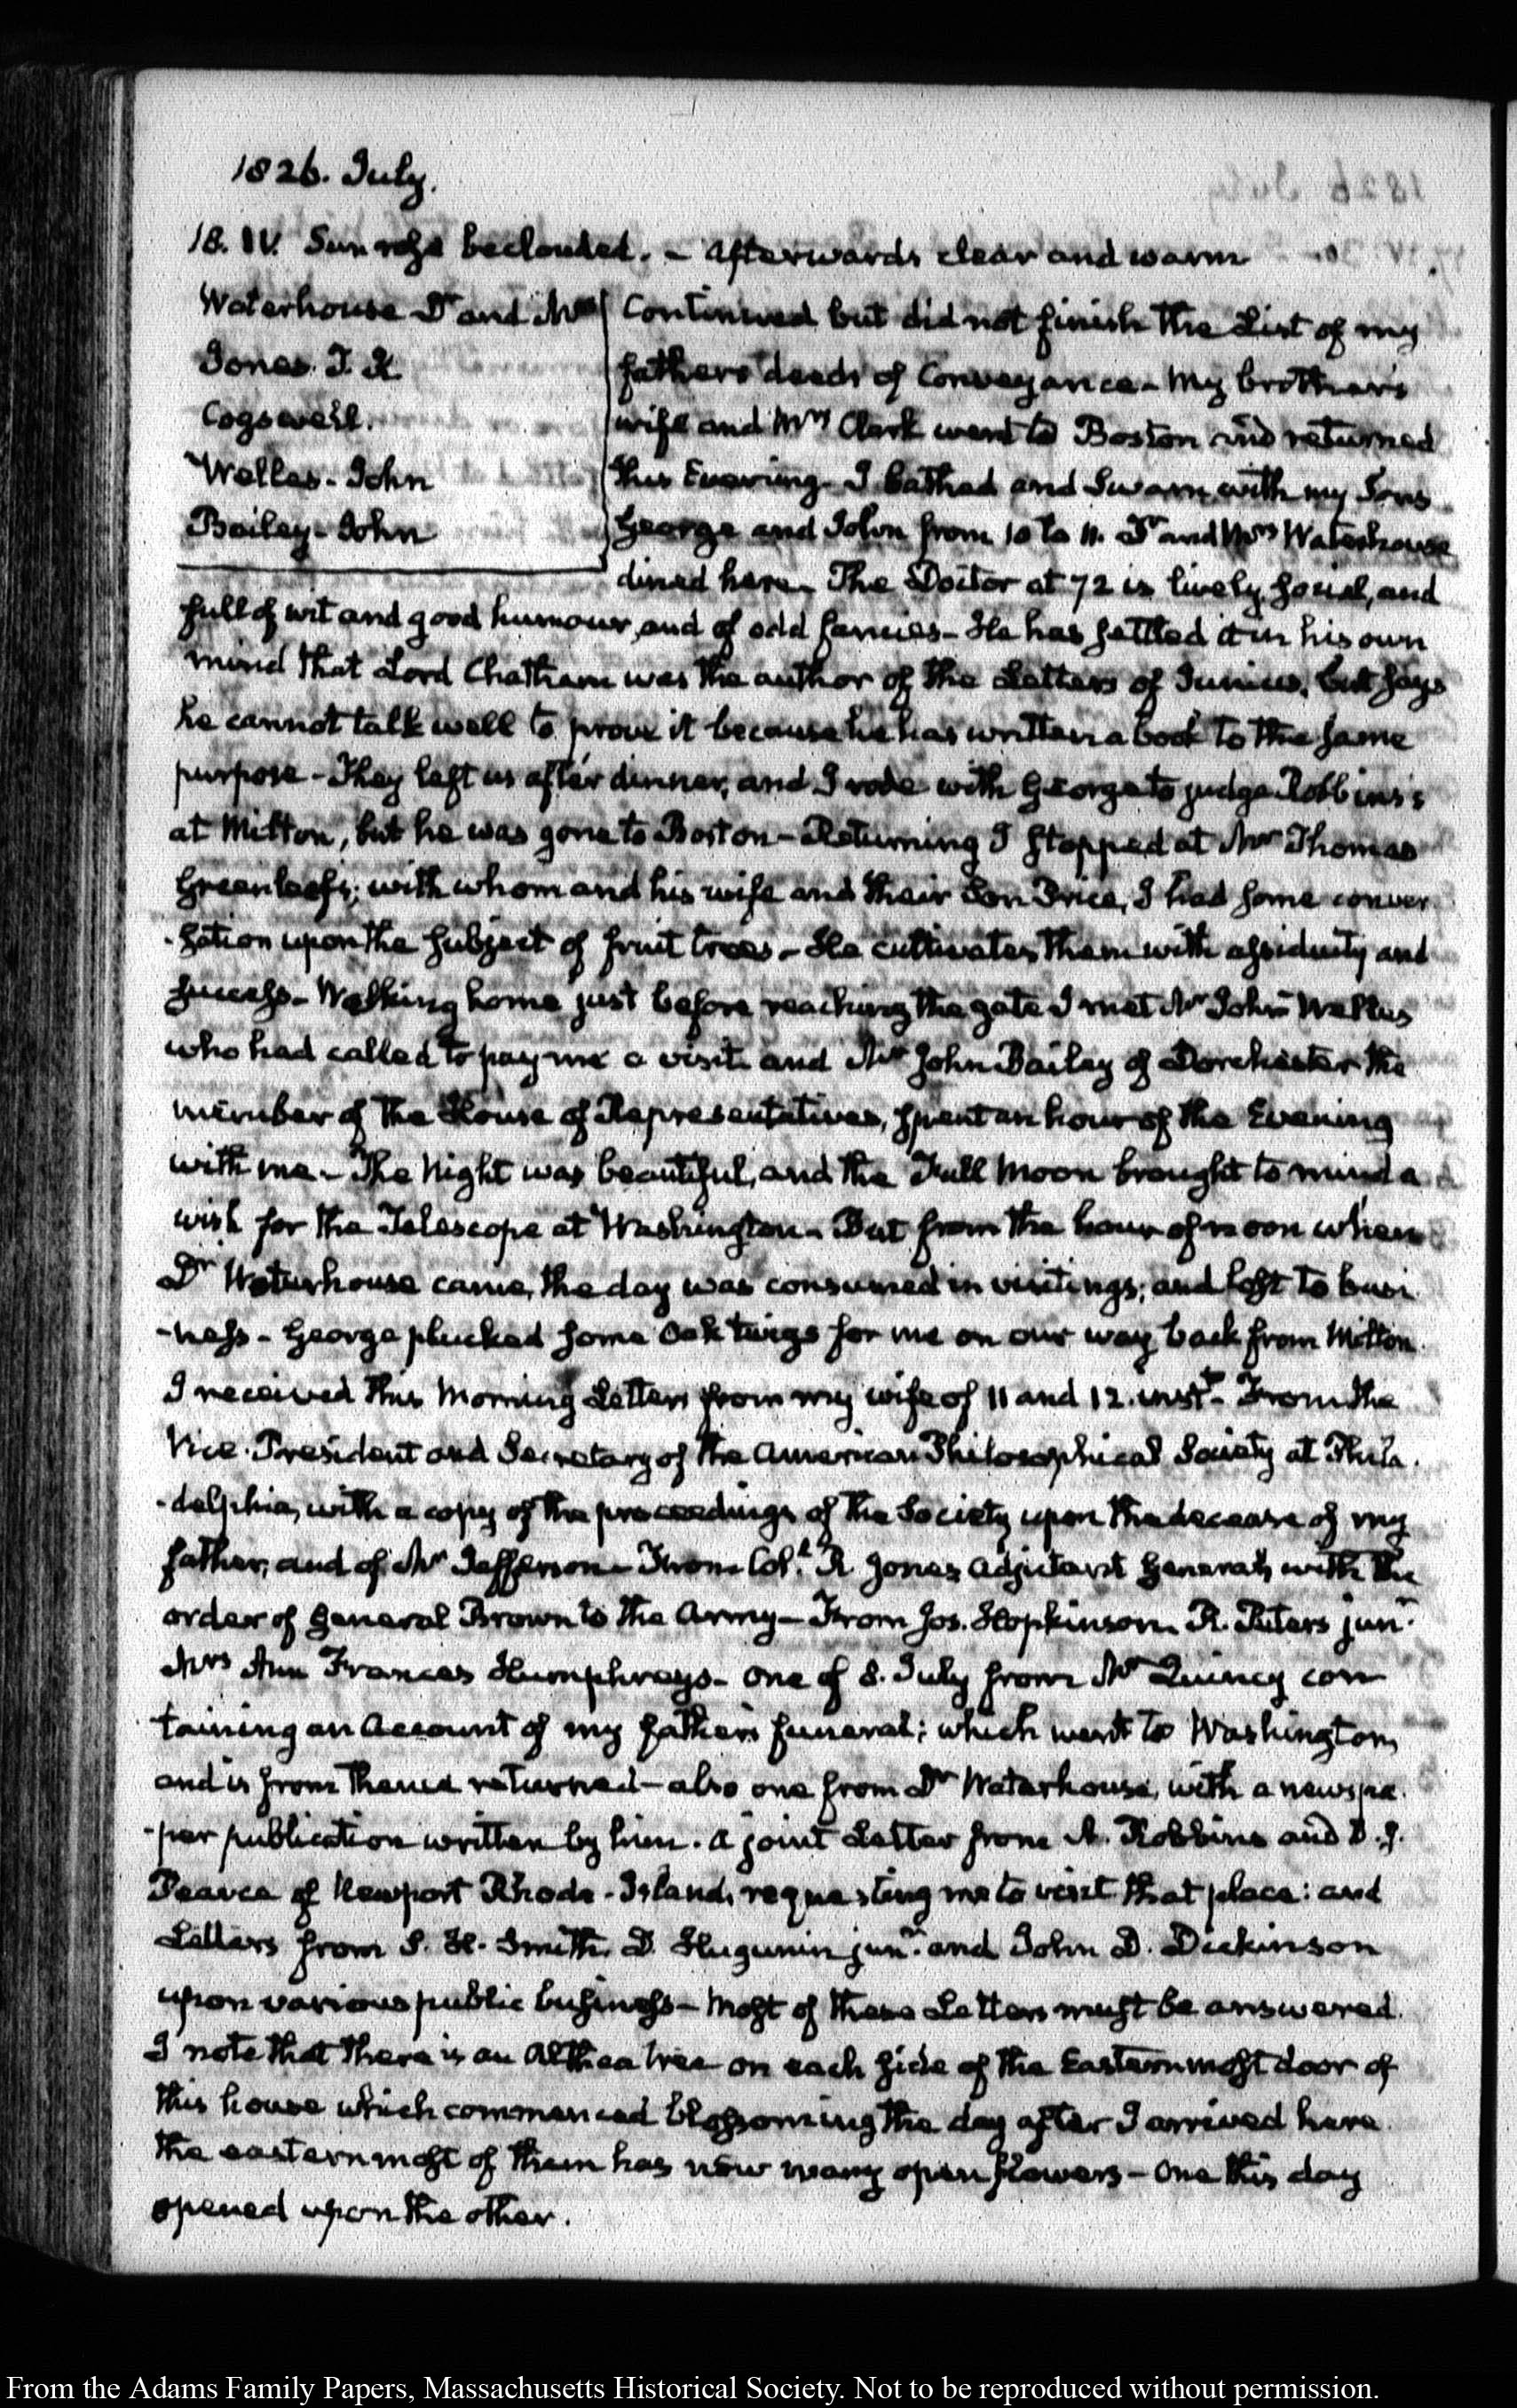 1826. July.
18. IV. Sun rose beclouded. - Afterwards clear and warm
Waterhouse Dr and Mrs
Jones. T. K
Cogswell.
Welles - John
Bailey - John
Continued but did not finish the List of my
fathers deeds of Conveyance - My brother's
wife and Mrs Clark went to Boston and returned
this Evening - I bathed and Swam with my Sons
George and John from 10 to 11. Dr and Mrs Waterhouse
dined here - The Doctor at 72 is lively, social, and
full of wit and good humour, and of odd fancies - He has settled it in his own
mind that Lord Chatham was the author of the Letters of Junius, but says
he cannot talk well to prove it because he has written a book to the same
purpose - They left us after dinner, and I rode with George to judge Robbins's
at Milton, but he was gone to Boston - Returning I stopped at Mr Thomas
Greenleaf's; with whom and his wife and their Son Price, I had some conver
-sation upon the subject of fruit trees - He cultivates them with assiduity and
success - Walking home just before reaching the gate I met Mr John Welles
who had called to pay me a visit and Mr John Bailey of Dorchester the
member of the House of Representatives, spent an hour of the Evening
with me - The Night was beautiful, and the Full Moon brought to mind a
wish for the Telescope at Washington - But from the hour of noon when
Dr Waterhouse came, the day was consumed in visitings; and lost to busi
-ness - George plucked some Oak twigs for me on our way back from Milton.
I received this Morning Letters from my wife of 11 and 12. inst - From the
Vice-President and Secretary of the American Philosophical Society at Phila.
-delphia, with a copy of the proceedings of the Society upon the decease of my
father, and of Mr Jefferson - From Col. R. Jones Adjutant General, with the
order of General Brown to the Army - From Jos. Hopkinson. R. Peters junr.
Mrs Ann Frances Humphreys - One of 8. July from Mr Quincy con
taining an Account of my father's funeral; which went to Washington,
and is from thence returned - also one from Dr Waterhouse, with a newspa.
-per publication written by him. A joint Letter from A. Robbins and D. J.
Pearce of Newport Rhode-Island, requesting me to visit that place: and
Letters from S. H. Smith, D. Hugunin junr. and John D. Dickinson
upon various public business - Most of these Letters must be answered.
I note that there is an Althea tree on each side of the Easternmost door of
this house which commenced blossoming the day after I arrived here.
the easternmost of them has now many open flowers - One this day
opened upon the other.
From the Adams Family Papers, Massachusetts Historical Society. Not to be reproduced without permission.